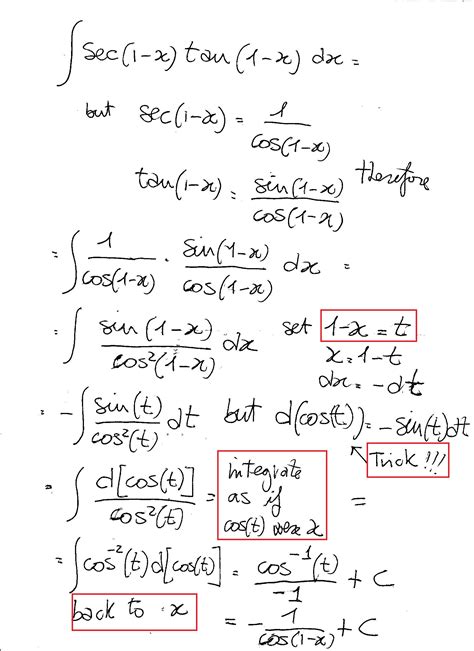 ∫ sec(1-x) tan(1-x) dx =
but sec(1-x) = 1/cos(1-x)
tan(1-x) = sin(1-x)/cos(1-x) therefore
= ∫ 1/cos(1-x) · sin(1-x)/cos(1-x) dx =
= ∫ sin(1-x)/cos²(1-x) dx set 1-x = t
x = 1-t
dx = -dt
= -∫ sin(t)/cos²(t) dt but d(cos(t)) = -sin(t)dt
Trick!!!
= ∫ d[cos(t)]/cos²(t) = integrate as if cos(t) were x =
= ∫ cos⁻²(t) d[cos(t)] = cos⁻¹(t)/-1 + C
back to x = - 1/cos(1-x) + C